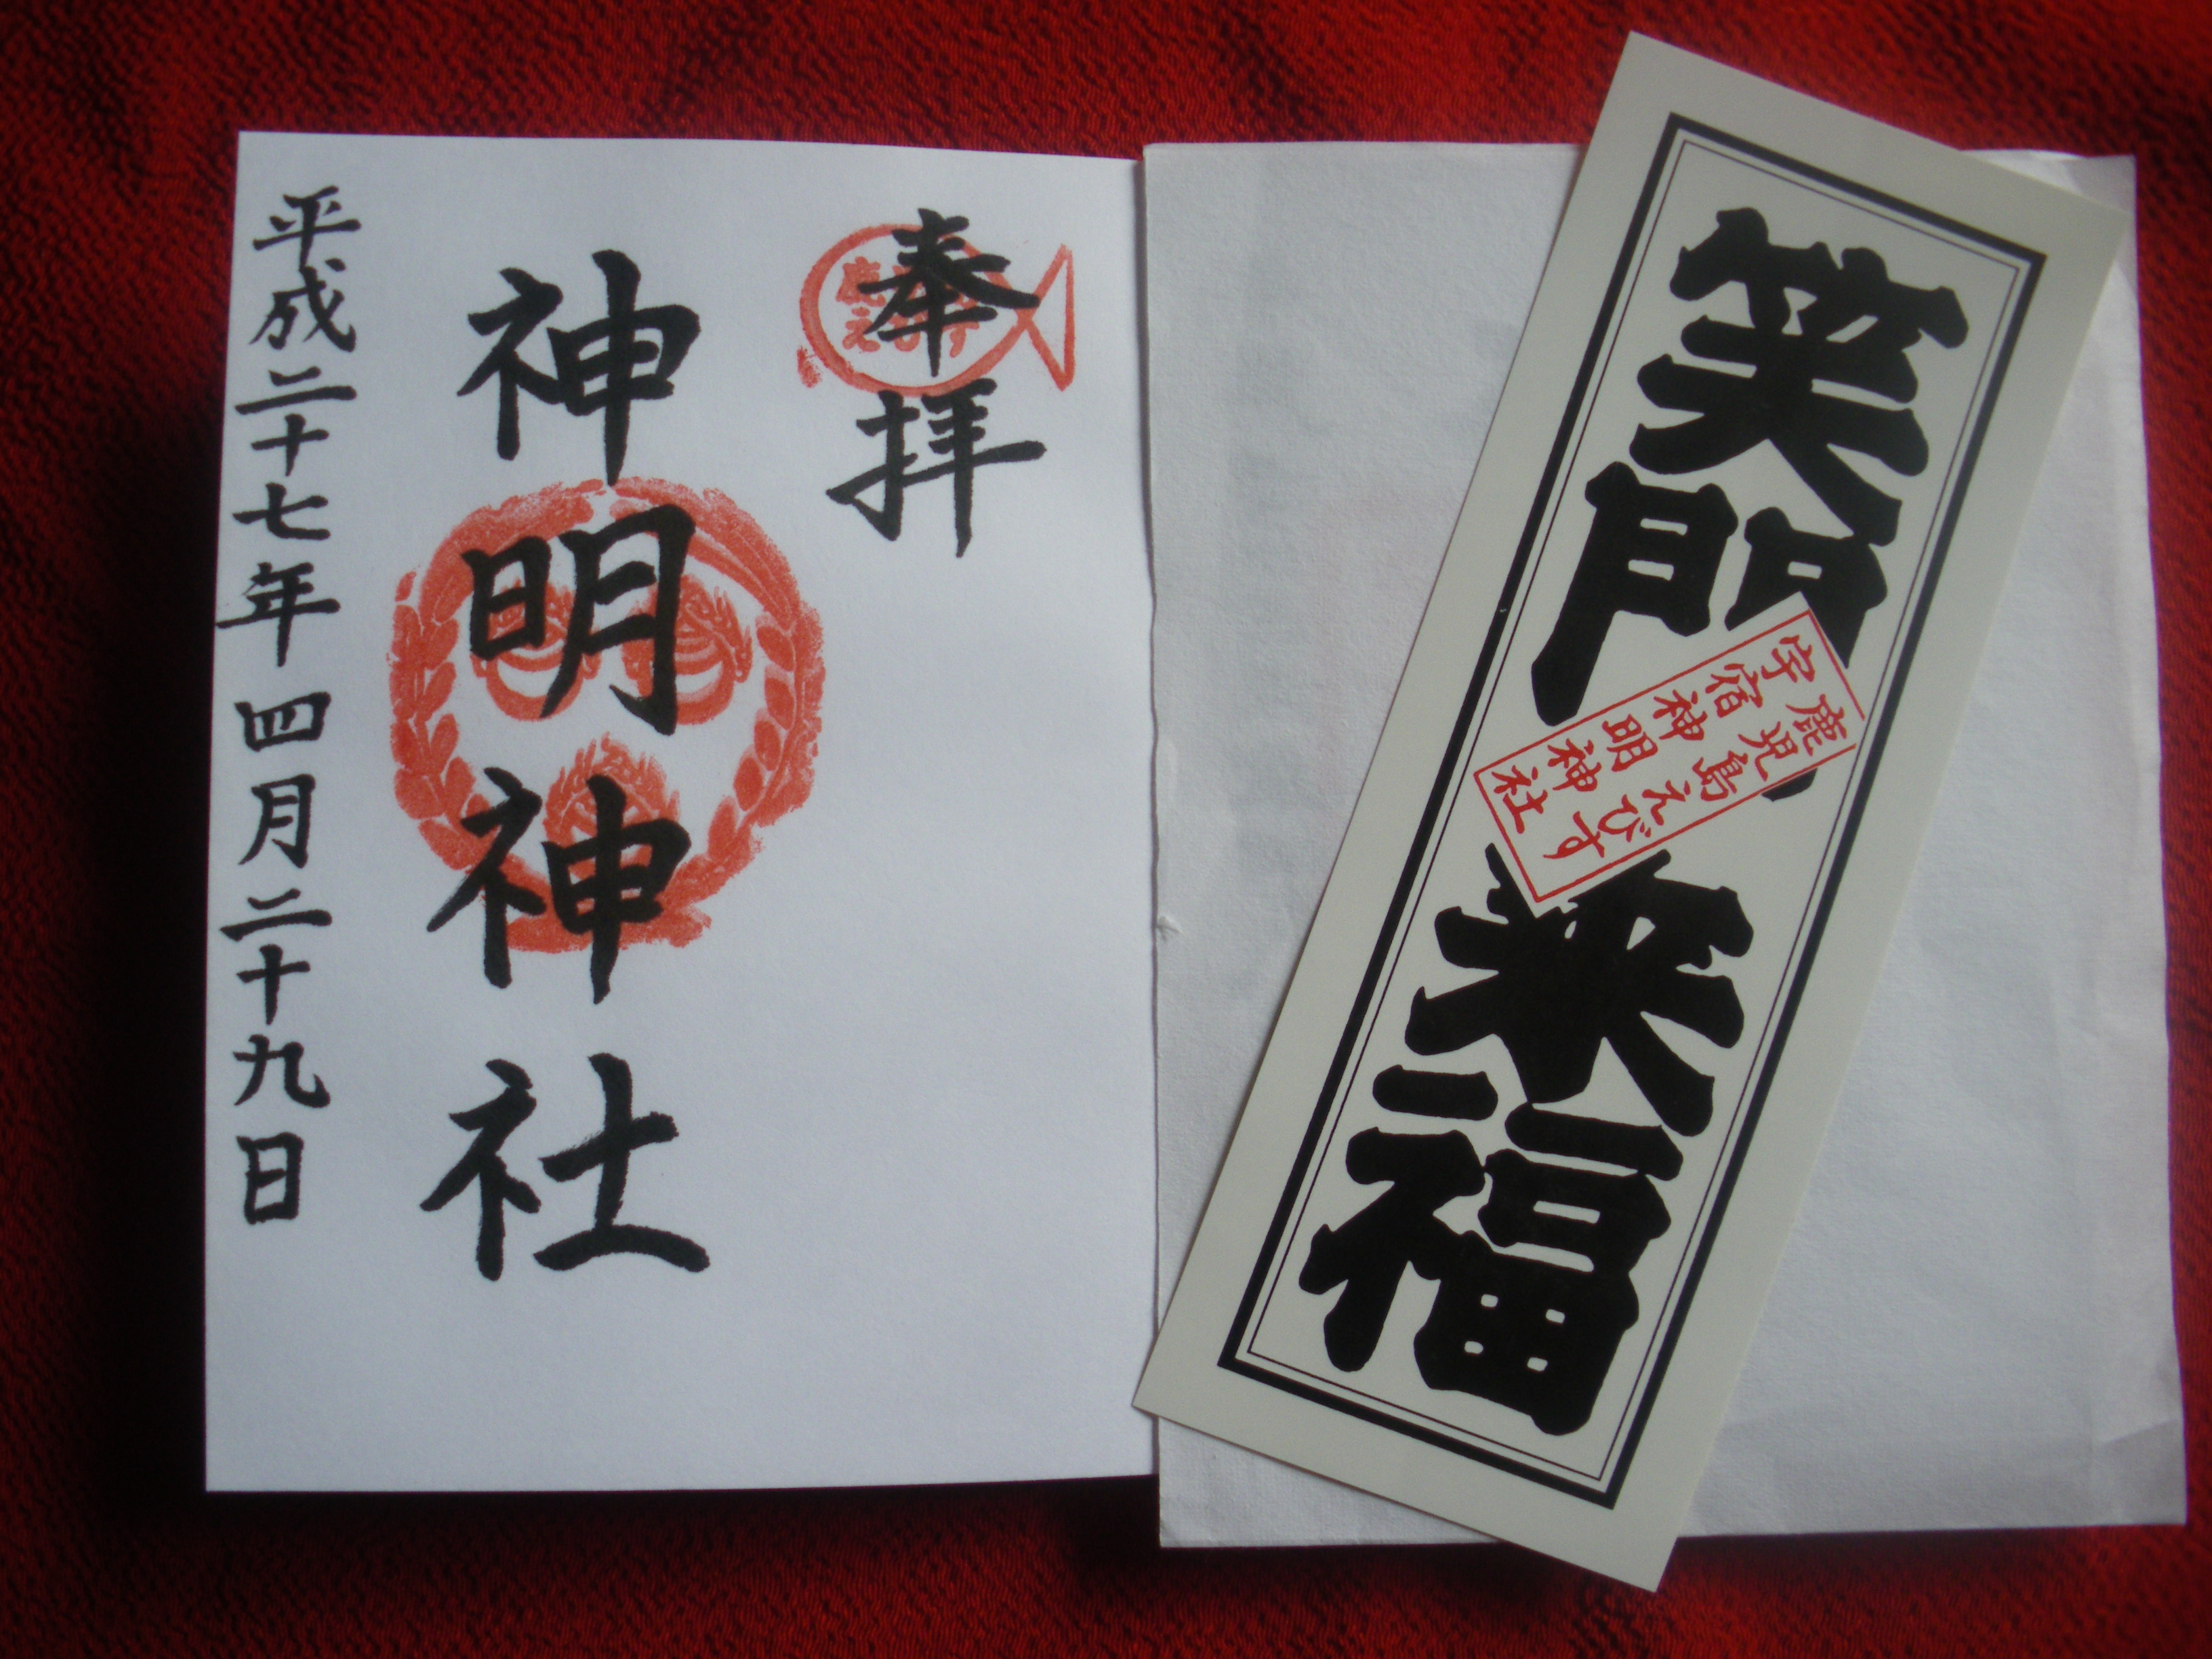 笑門来福
鹿児島えびす
宇宿神明神社
奉拝
神明神社
平成二十七年四月二十九日